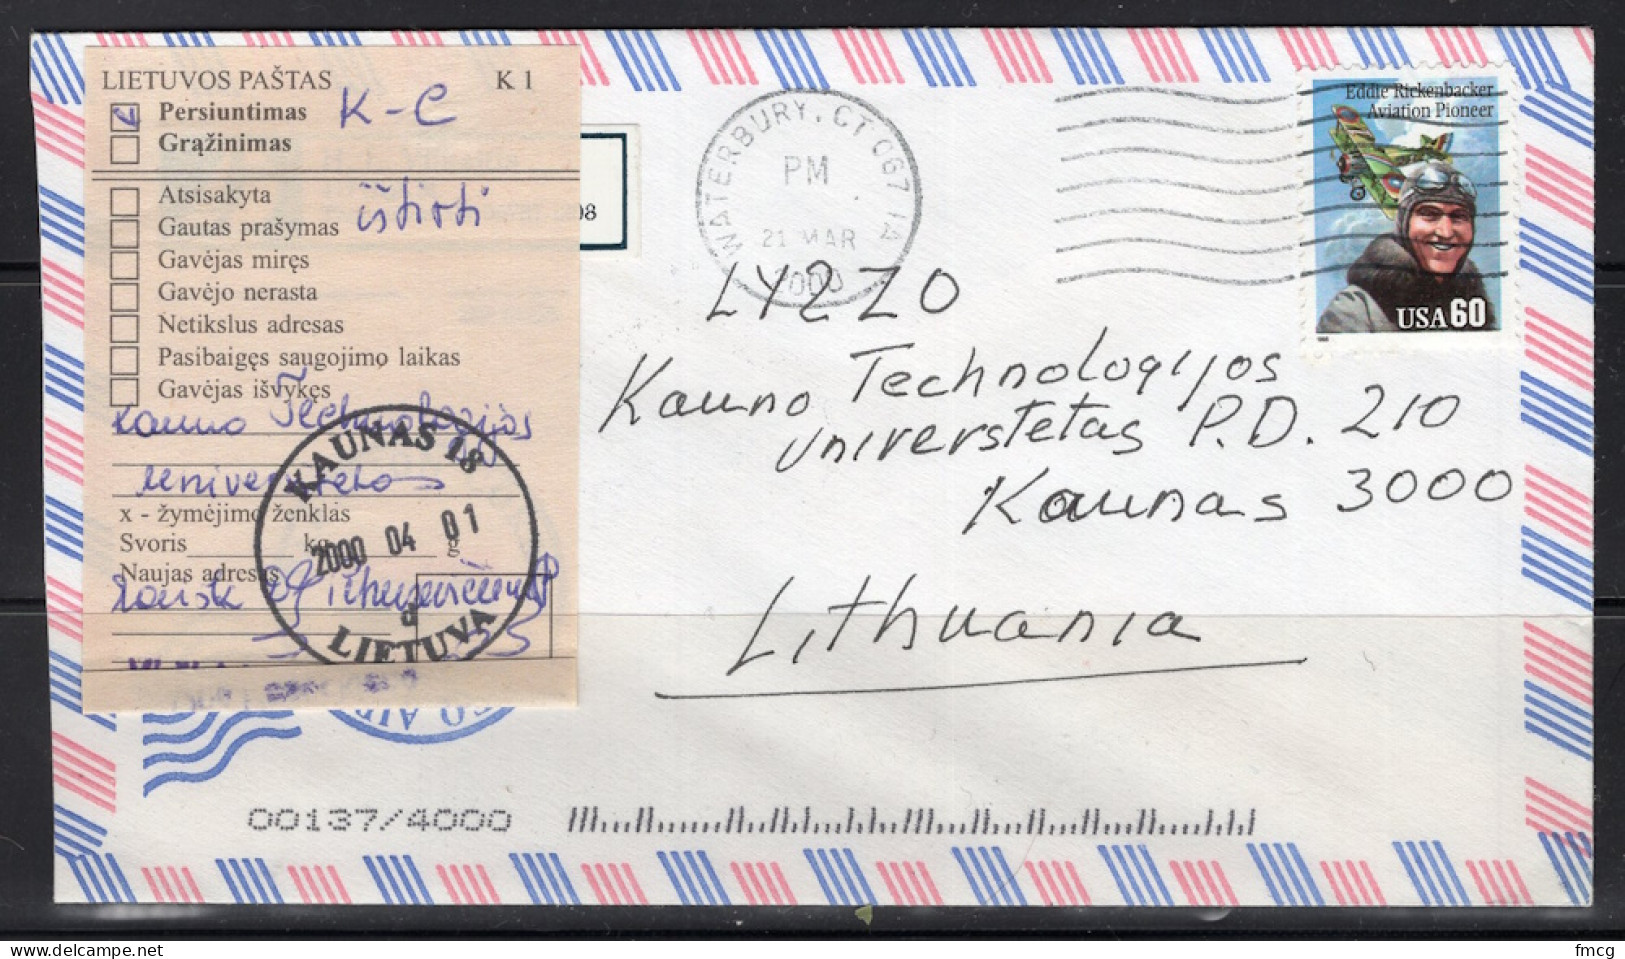 LIETUVOS PAŠTAS K 1
Persiuntimas K-C
Grąžinimas
Atsisakyta
Gautas prašymas ištirti
Gavėjas miręs
Gavėjo nerasta
Netikslus adresas
Pasibaigęs saugojimo laikas
Gavėjas išvykęs
Kauno Technologijos
Universitetas
x - žymėjimo ženklas
Svoris kg g
Naujas adresas
KAUNAS 18
2000 04 01
a
LIETUVA
08
WATERBURY, CT 067 1A
PM
21 MAR
2000
Eddie Rickenbacker
Aviation Pioneer
USA 60
LYZZO
Kauno Technologijos
Universtetas P.D. 210
Kaunas 3000
Lithuania
00137/4000
fmcg